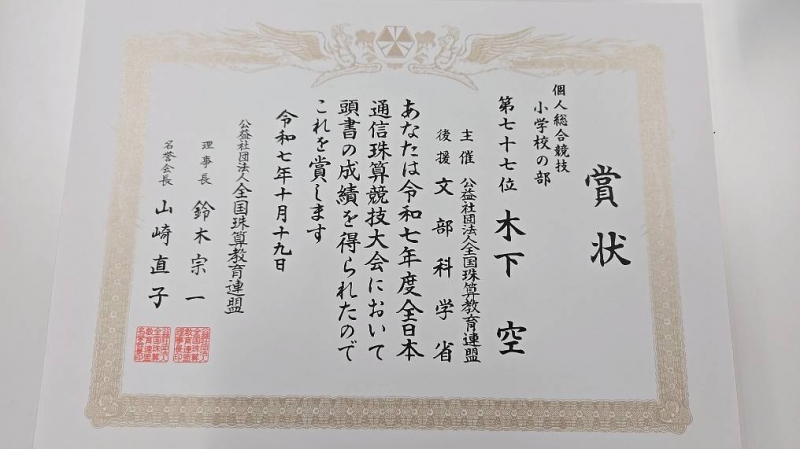 賞状
個人総合競技
小学校の部
第七十七位 木下 空
主催 公益社団法人全国珠算教育連盟
後援 文部科学省
あなたは令和七年度全日本
通信珠算競技大会において
頭書の成績を得られたので
これを賞します
令和七年十月十九日
公益社団法人全国珠算教育連盟
理事長 鈴木宗一
名誉会長 山崎直子